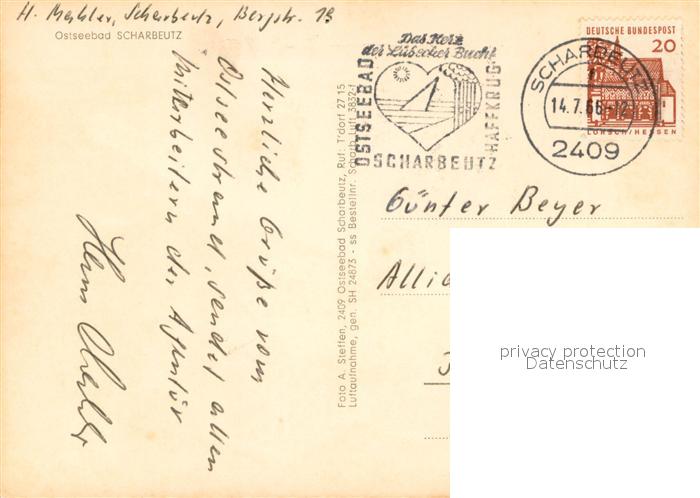 H. Mechler, Scharbeutz, Bergstr. 13
Ostseebad SCHARBEUTZ
Herzliche Grüße vom
Ostseestrand, sendet allen
Mitarbeitern der Agentur
Hans
Foto A. Steffen, 2409 Ostseebad Scharbeutz, Ruf: T'dorf 27 15
Luftaufnahme, gen. SH 24873 - ss Bestellnr. Scharb. Luft 3832-1
Das Herz
der Lübecker Bucht
OSTSEEBAD
SCHARBEUTZ
HAFFKRUG
SCHARBEUTZ
14.7.66-12
2409
DEUTSCHE BUNDESPOST
20
LORSCH/HESSEN
Günter Beyer
Allia
privacy protection
Datenschutz